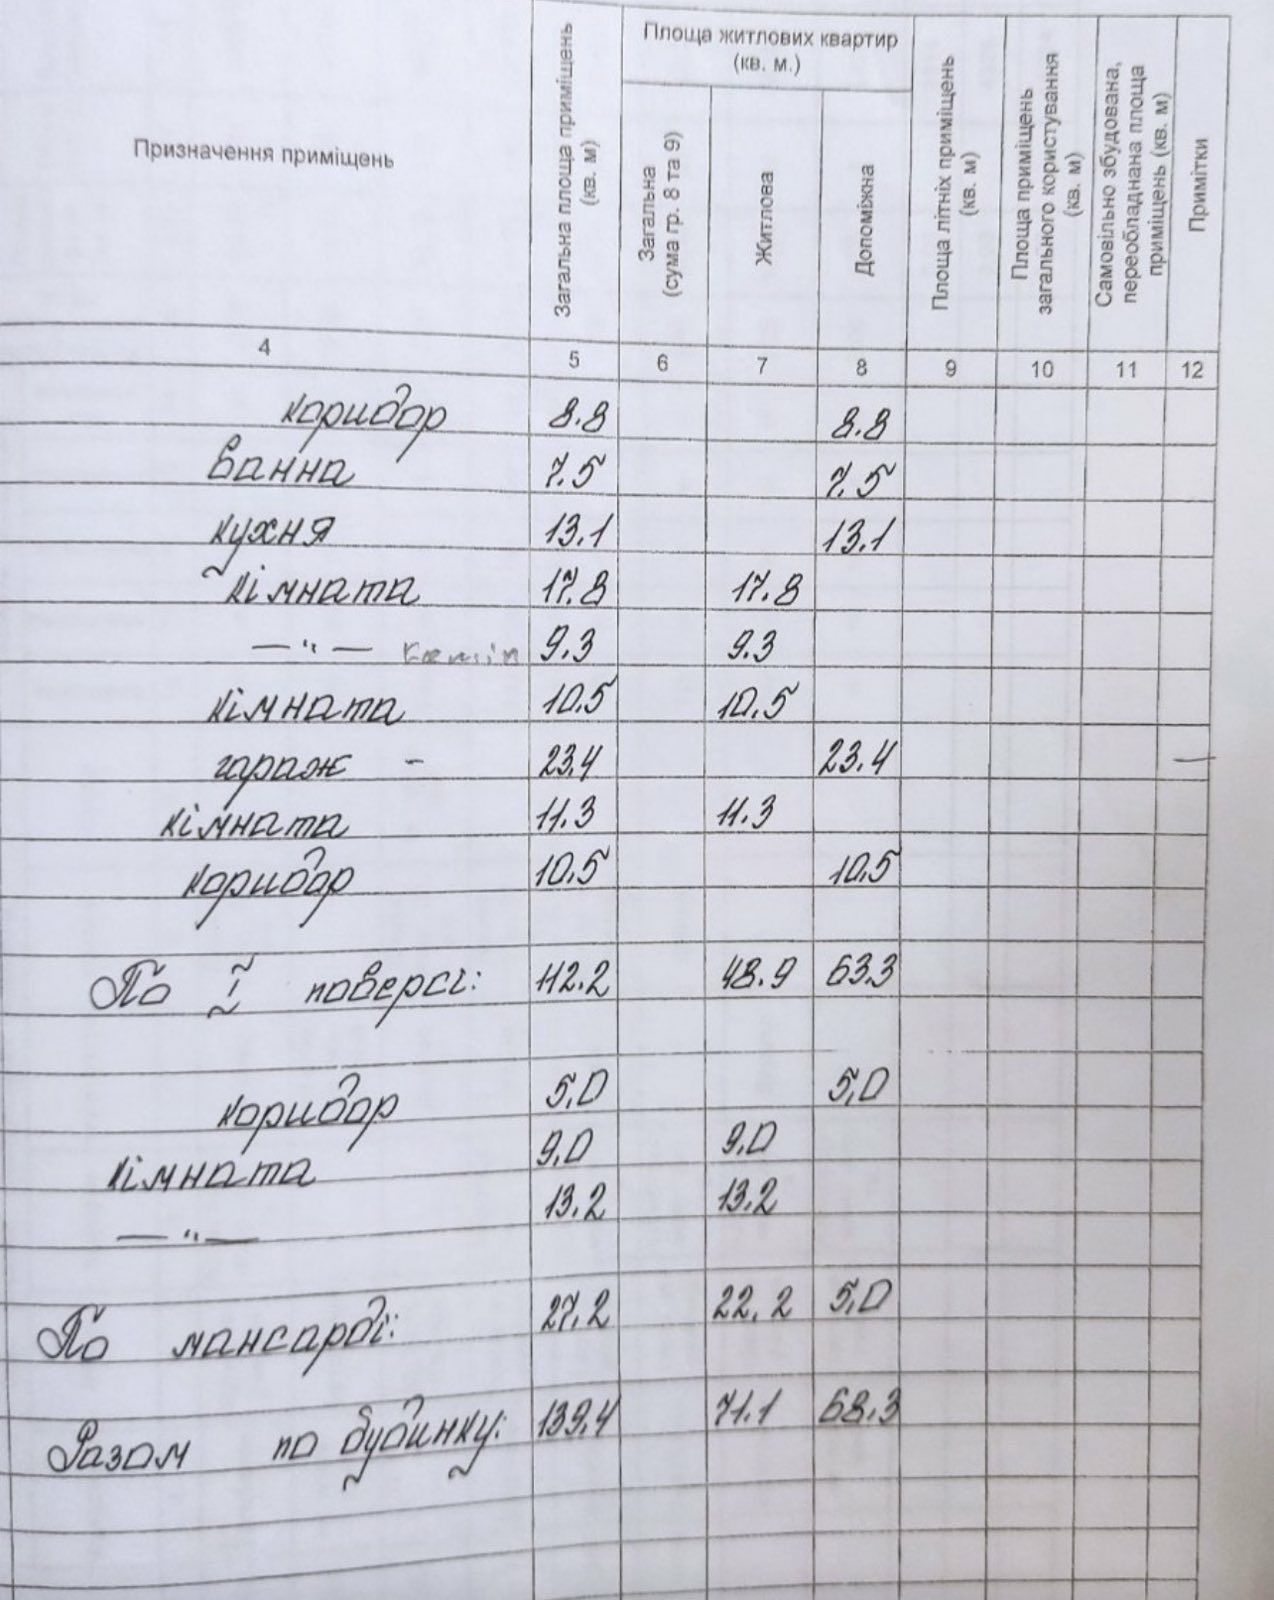 Призначення приміщень
Загальна площа приміщень (кв. м)
Площа житлових квартир (кв. м.)
Загальна (сума гр. 8 та 9)
Житлова
Допоміжна
Площа літніх приміщень (кв. м)
Площа приміщень загального користування (кв. м)
Самовільно збудована, переобладнана площа приміщень (кв. м)
Примітки
4 5 6 7 8 9 10 11 12
коридор 8.8 8.8
ванна 7.5 7.5
кухня 13.1 13.1
кімната 17.8 17.8
— " — 9.3 9.3
кімната 10.5 10.5
гараж - 23.4 23.4 —
кімната 11.3 11.3
коридор 10.5 10.5
По I поверсі: 112.2 48.9 63.3
коридор 5,0 5,0
кімната 9,0 9,0
— " — 13.2 13.2
По мансарді: 27.2 22.2 5,0
Разом по будинку: 139.4 71.1 68.3